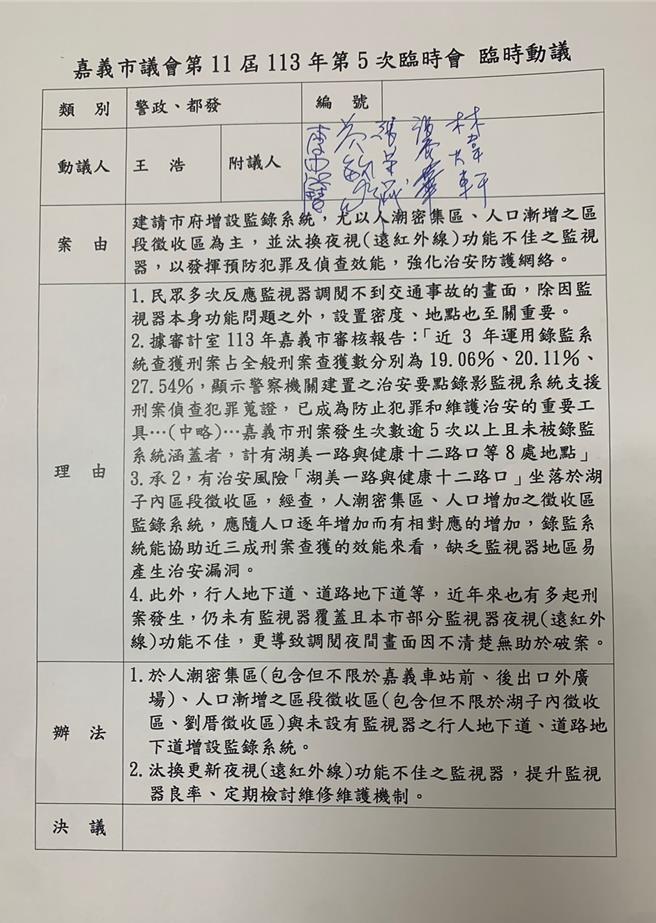 嘉義市議會第11屆113年第5次臨時會 臨時動議
類 別 警政、都發 編 號
動議人 王 浩 附議人
林大韋軒
案 由
建請市府增設監錄系統，尤以人潮密集區、人口漸增之區
段徵收區為主，並汰換夜視(遠紅外線)功能不佳之監視
器，以發揮預防犯罪及偵查效能，強化治安防護網絡。
理 由
1.民眾多次反應監視器調閱不到交通事故的畫面，除因監
視器本身功能問題之外，設置密度、地點也至關重要。
2.據審計室113年嘉義市審核報告：「近 3 年運用錄監系
統查獲刑案占全般刑案查獲數分別為19.06%、20.11%、
27.54%，顯示警察機關建置之治安要點錄影監視系統支援
刑案偵查犯罪蒐證，已成為防止犯罪和維護治安的重要工
具…(中略)…嘉義市刑案發生次數逾5次以上且未被錄監
系統涵蓋者，計有湖美一路與健康十二路口等8處地點」
3.承2，有治安風險「湖美一路與健康十二路口」坐落於湖
子內區段徵收區，經查，人潮密集區、人口增加之徵收區
監錄系統，應隨人口逐年增加而有相對應的增加，錄監系
統能協助近三成刑案查獲的效能來看，缺乏監視器地區易
產生治安漏洞。
4.此外，行人地下道、道路地下道等，近年來也有多起刑
案發生，仍未有監視器覆蓋且本市部分監視器夜視(遠紅外
線)功能不佳，更導致調閱夜間畫面因不清楚無助於破案。
辦 法
1.於人潮密集區(包含但不限於嘉義車站前、後出口外廣
場)、人口漸增之區段徵收區(包含但不限於湖子內徵收
區、劉厝徵收區)與未設有監視器之行人地下道、道路地
下道增設監錄系統。
2.汰換更新夜視(遠紅外線)功能不佳之監視器，提升監視
器良率、定期檢討維修維護機制。
決 議